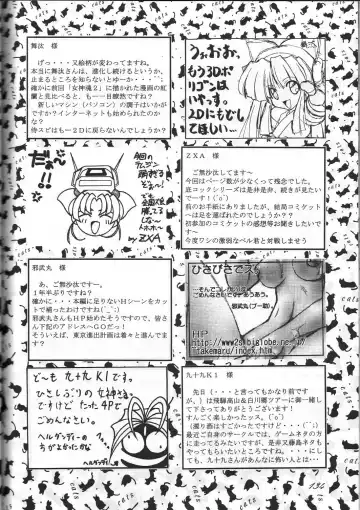 舞汰 様
げっ・・・又絵柄が変わってますね。
本当に舞汰さんは、進化し続けるというか、
止まるところを知らないとゆーか・・(^^;
確かに前回「女神魂2」に描かれた漫画の紅
蘭と見比べると、もう一目瞭然ですね？
新しいマシン（パソコン）の調子はいかが
ですか？インターネットも始められたのです
か？
侍スピはもー2Dに戻らないんでしょうか？
うぉおお、
もう3Dポ
リゴンは
いやっす。
2Dにもどし
てほしい…
だぁっ!!
by ZXA
ZXA 様
ご無沙汰してます～
今回はページ数が少なくって残念でした。
底コックシリーズは是非是非、続きが見たい
ですー！(^o^)
前のお手紙にありましたが、結局コミケット
へは足を運ばれたのでしょうか？？
初参加のコミケットの感想等お待ちしていま
す。
今度ワシの激弱なベル君と対戦しませう
邪武丸 様
あ、ご無沙汰です～
1年半ぶりですね？
確かに・・・本編に足りないHシーンをカッ
トで補ったわけですね(^_^;)
邪武丸さんもHP始めたそうですので、皆さ
ん下記のアドレスへGOだっ！
そういえば、東京進出計画は着々と進んでま
す？
ひさびさでス
ごめんなさいです。あうあう。
邪武丸(ブー助)
HP
九十九K1 様
先日（・・・と言ってもかなり前です
が、）は飛騨高山&白川郷ツアーに御一緒し
て下さってありがとうございます！
すんごく楽しかったッス。(^o^)
（濁り酒はすごかったですけど・・・(^^;）
最近ご自身のサークルでは、ゲームネタの方
に走ってるみたいですが、是非又藤島ネタも
やってもらいたいところですね。・・・にし
ても、九十九さんがあんなに怖い人とは・・・
どーも 九十九K1です。
ひさしぶりの女神さま
ですけど たった4Pで
ごめんなさい。
ヘルダッディーの
ちがよかったかな
ヘルダッディ
134
cats